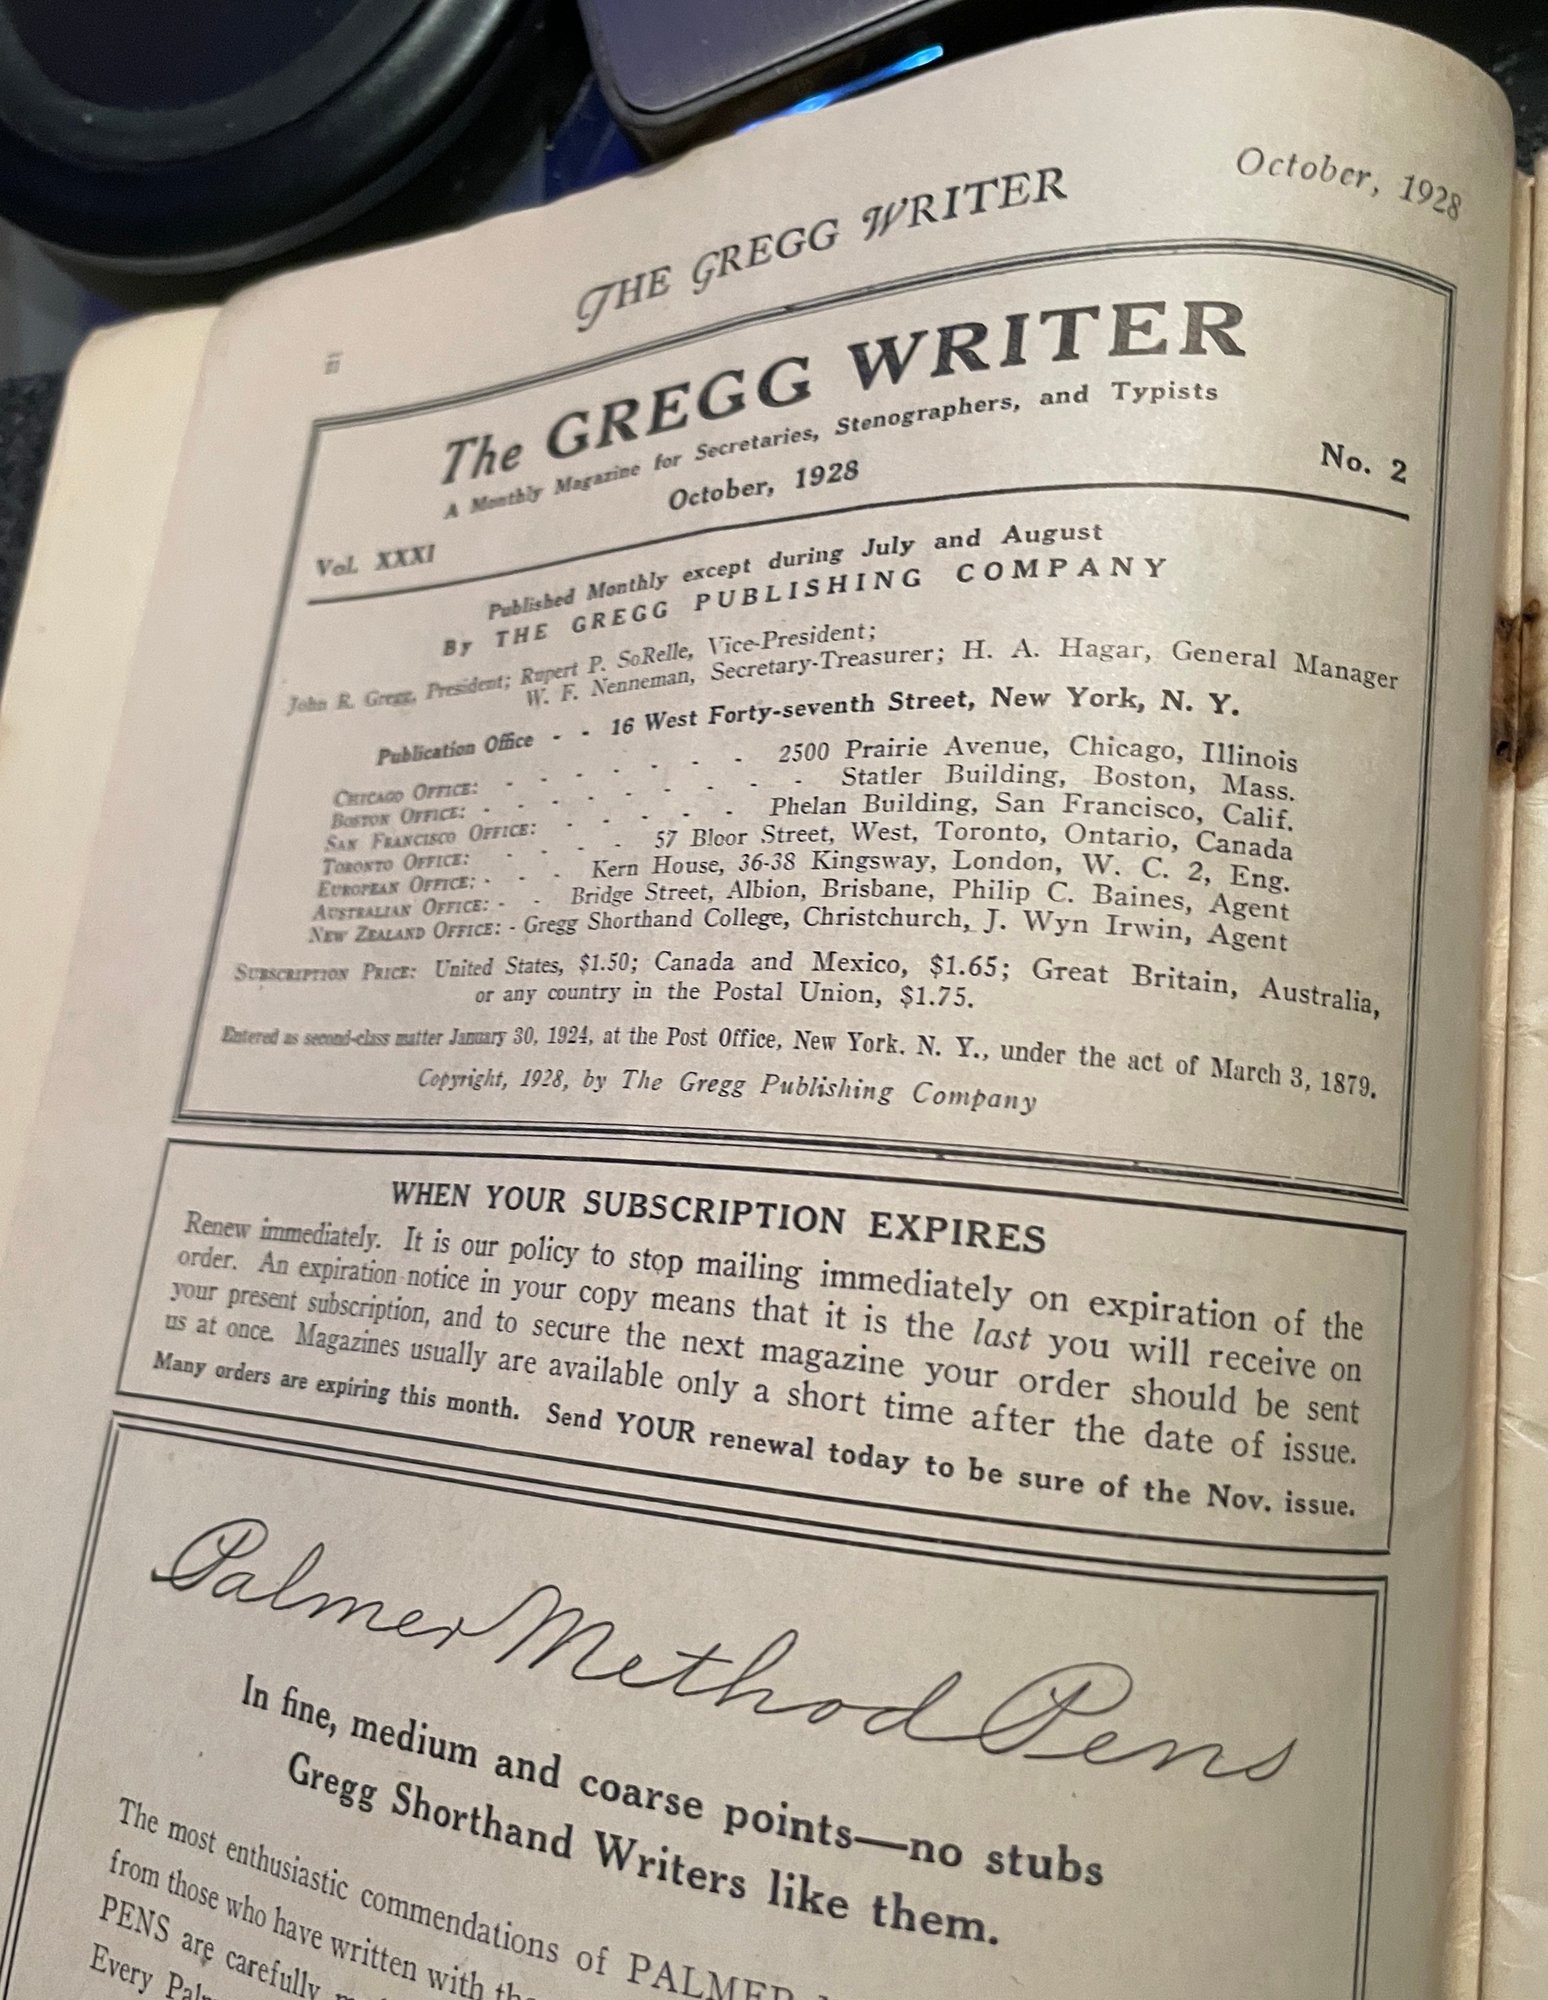 ii
THE GREGG WRITER
October, 1928
The GREGG WRITER
A Monthly Magazine for Secretaries, Stenographers, and Typists
Vol. XXXI
October, 1928
No. 2
Published Monthly except during July and August
By THE GREGG PUBLISHING COMPANY
John R. Gregg, President; Rupert P. SoRelle, Vice-President;
W. F. Nenneman, Secretary-Treasurer; H. A. Hagar, General Manager
Publication Office - - 16 West Forty-seventh Street, New York, N. Y.
CHICAGO OFFICE: - - - - - - 2500 Prairie Avenue, Chicago, Illinois
BOSTON OFFICE: - - - - - - - Statler Building, Boston, Mass.
SAN FRANCISCO OFFICE: - - - - - Phelan Building, San Francisco, Calif.
TORONTO OFFICE: - - - - 57 Bloor Street, West, Toronto, Ontario, Canada
EUROPEAN OFFICE: - - - Kern House, 36-38 Kingsway, London, W. C. 2, Eng.
AUSTRALIAN OFFICE: - - Bridge Street, Albion, Brisbane, Philip C. Baines, Agent
NEW ZEALAND OFFICE: - Gregg Shorthand College, Christchurch, J. Wyn Irwin, Agent
SUBSCRIPTION PRICE: United States, $1.50; Canada and Mexico, $1.65; Great Britain, Australia,
or any country in the Postal Union, $1.75.
Entered as second-class matter January 30, 1924, at the Post Office, New York, N. Y., under the act of March 3, 1879.
Copyright, 1928, by The Gregg Publishing Company
WHEN YOUR SUBSCRIPTION EXPIRES
Renew immediately. It is our policy to stop mailing immediately on expiration of the
order. An expiration notice in your copy means that it is the last you will receive on
your present subscription, and to secure the next magazine your order should be sent
us at once. Magazines usually are available only a short time after the date of issue.
Many orders are expiring this month. Send YOUR renewal today to be sure of the Nov. issue.
Palmer Method Pens
In fine, medium and coarse points—no stubs
Gregg Shorthand Writers like them.
The most enthusiastic commendations of PALMER
from those who have written with
PENS are carefully
Every